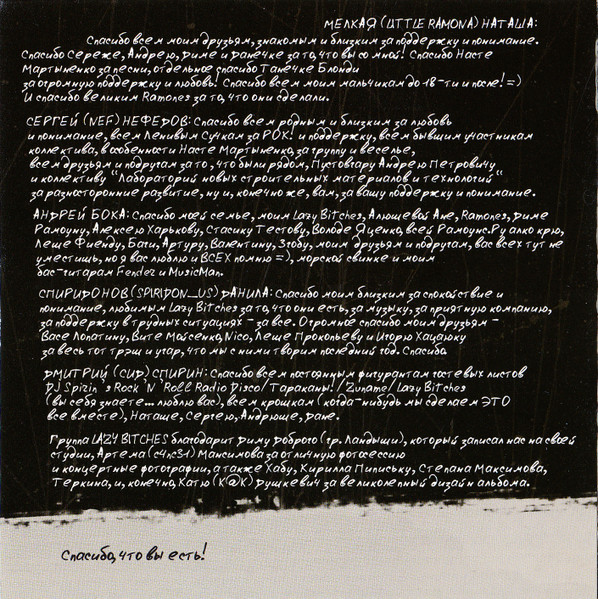 МЕЛКАЯ (LITTLE RAMONA) НАТАША:
Спасибо всем моим друзьям, знакомым и близким за поддержку и понимание.
Спасибо Сереже, Андрею, Диме и Данечке за то, что вы со мной! Спасибо Насте
Мартыненко за песни, отдельное спасибо Танечке Блонди
за огромную поддержку и любовь! Спасибо всем моим мальчикам до 18-ти и после! =)
И спасибо великим Ramones за то, что они сделали.
СЕРГЕЙ (NEF) НЕФЕДОВ: Спасибо всем родным и близким за любовь
и понимание, всем Ленивым Сучкам за РОК! и поддержку, всем бывшим участникам
коллектива, в особенности Насте Мартыненко, за группу и веселье,
всем друзьям и подругам за то, что были рядом, Пустовгару Андрею Петровичу
и коллективу “Лабораторий новых строительных материалов и технологий“
за разностороннее развитие, ну и, конечно же, вам, за вашу поддержку и понимание.
АНДРЕЙ БОХА: Спасибо моей семье, моим Lazy Bitches, Алюшевой Ане, Ramones, Диме
Рамоуну, Алексею Харькову, Стасику Тестову, Володе Яценко, всей Рамоунс.Ру алко крю,
Леше Фиенду, Баги, Артуру, Валентину, Згобу, моим друзьям и подругам, вас всех тут не
уместишь, но я вас люблю и ВСЕХ помню =), морской свинке и моим
бас-гитарам Fender и MusicMan.
СПИРИДОНОВ (SPIRIDON_US) ДАНИЛА: Спасибо моим близким за спокойствие и
понимание, любимым Lazy Bitches за то, что они есть, за музыку, за приятную компанию,
за поддержку в трудных ситуациях - за все. Огромное спасибо моим друзьям -
Васе Лопатину, Вите Мойсенко, Nico, Леше Прокопьеву и Игорю Хацаюку
за весь тот трэш и угар, что мы с ними творим последний год. Спасибо
ДМИТРИЙ (СИД) СПИРИН: Спасибо всем постоянным фигурантам гостевых листов
DJ Spirin`s Rock`N`Roll Radio Disco/ Тараканы! /Zuname/ Lazy Bitches
(вы себя знаете... люблю вас), всем крошкам (когда-нибудь мы сделаем ЭТО
все вместе), Наташе, Сергею, Андрюше, Дане.
Группа LAZY BITCHES благодарит Диму Доброго (гр. Ландыши), который записал нас на своей
студии, Артема (c4nc3r) Максимова за отличную фотосессию
и концертные фотографии, а также Хабу, Кирилла Пипиську, Степана Максимова,
Теркина, и, конечно, Катю (K@K) Душкевич за великолепный дизайн альбома.
Спасибо, что вы есть!